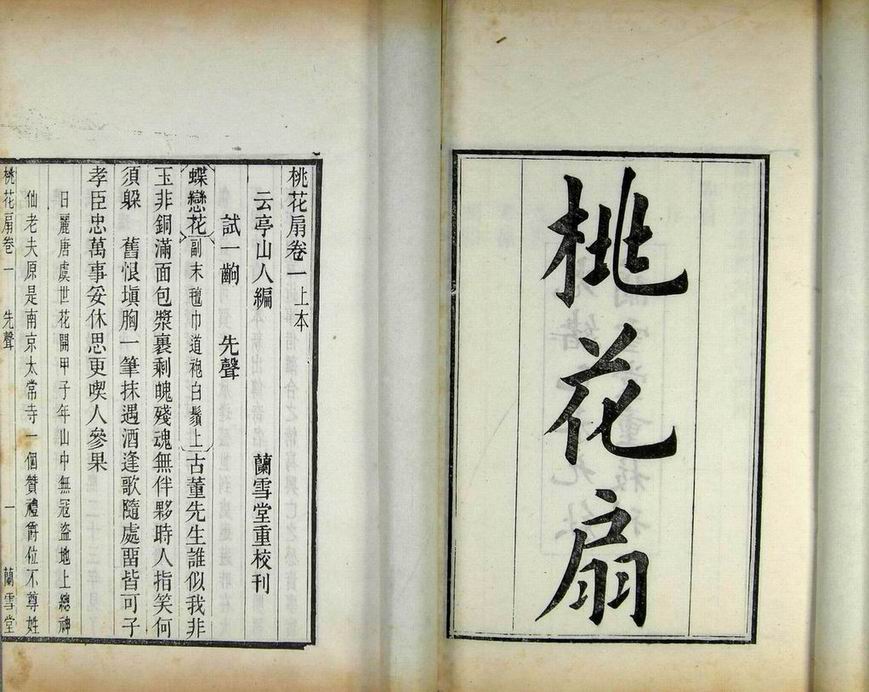 桃花扇
桃花扇卷一上本
云亭山人編
蘭雪堂重校刊
試一齣 先聲
蝶戀花副末氊巾道袍白鬚上古董先生誰似我非
玉非銅滿面包漿裹剩魄殘魂無伴夥時人指笑何
須躲 舊恨塡胸一筆抹遇酒逢歌隨處畱皆可子
孝臣忠萬事妥休思更喫人參果
日麗唐虞世花開甲子年山中無冦盗地上總神
仙老夫原是南京太常寺一個贊禮爵位不尊姓
桃花扇卷一 先聲 一 蘭雪堂